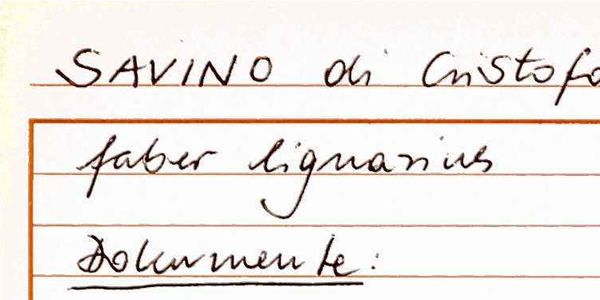 SAVINO di Cristofo
faber lignarius
Dokumente: